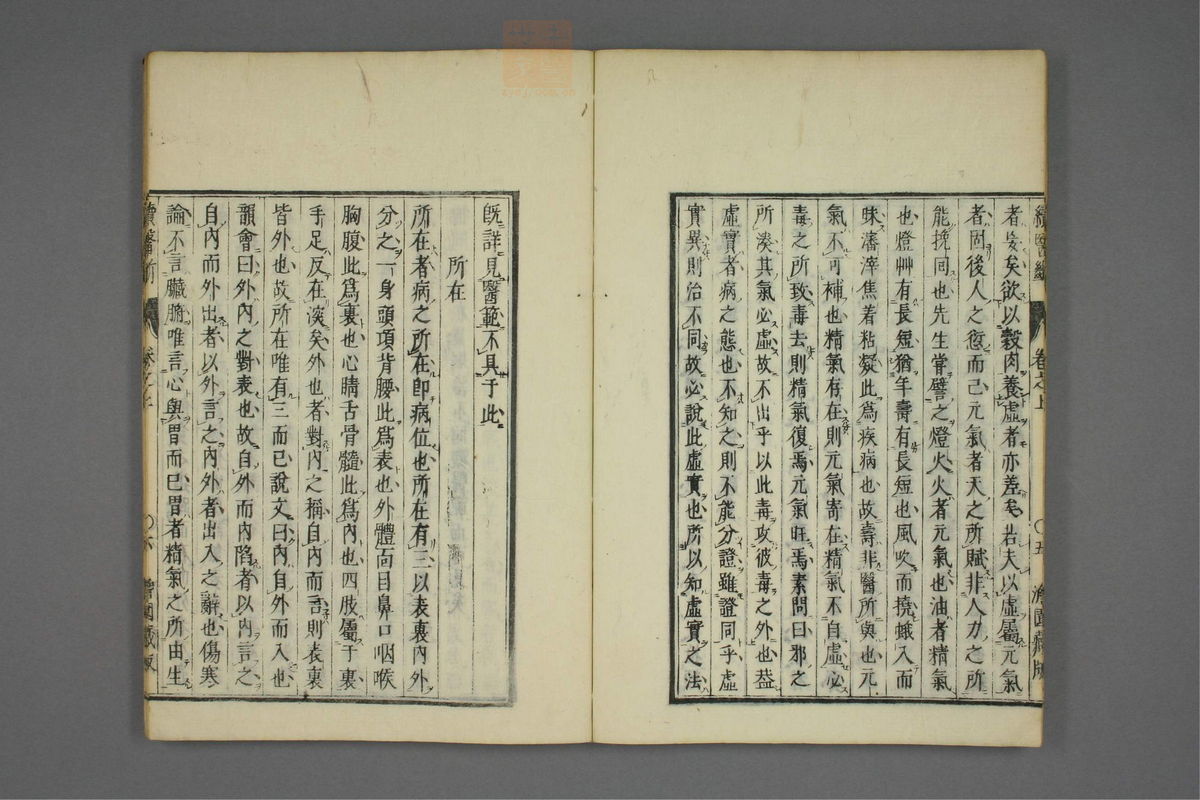 續醫斷 卷之上 〇五 濟國藏版
者妄矣欲以穀肉養虛者亦差矣若夫以虛屬元氣
者固後人之愆而已元氣者天之所賦非人力之所
能挽回也先生嘗譬之燈火火者元氣也油者精氣
也燈艸有長短猶年壽有長短也風吹而撓蛾入而
昧瀋滓焦着粘凝此爲疾病也故壽非醫所與也元
氣不可補也精氣存在則元氣寄在精氣不自虛必
毒之所致毒去則精氣復焉元氣旺焉素問曰邪之
所湊其氣必虛故不出乎以此毒攻彼毒之外也蓋
虛實者病之態也不知之則不能分證雖證同乎虛
實異則治不同故必說此虛實也所以知虛實之法
既詳見醫範不具于此
所在
所在者病之所在即病位也所在有三以表裏內外
分之一身頭項背腰此爲表也外體面目鼻口咽喉
胸腹此爲裏也心睛舌骨髓此爲內也四肢屬于裏
手足反在深矣外也者對內之稱自內而言則表裏
皆外也故所在唯有三而已說文曰內自外而入也
韻會曰外內之對表也故自外而內陷者以內言之
自內而外出者以外言之內外者出入之辭也傷寒
論不言臟腑唯言心與胃而已胃者精氣之所由生
續醫斷 卷之上 〇六